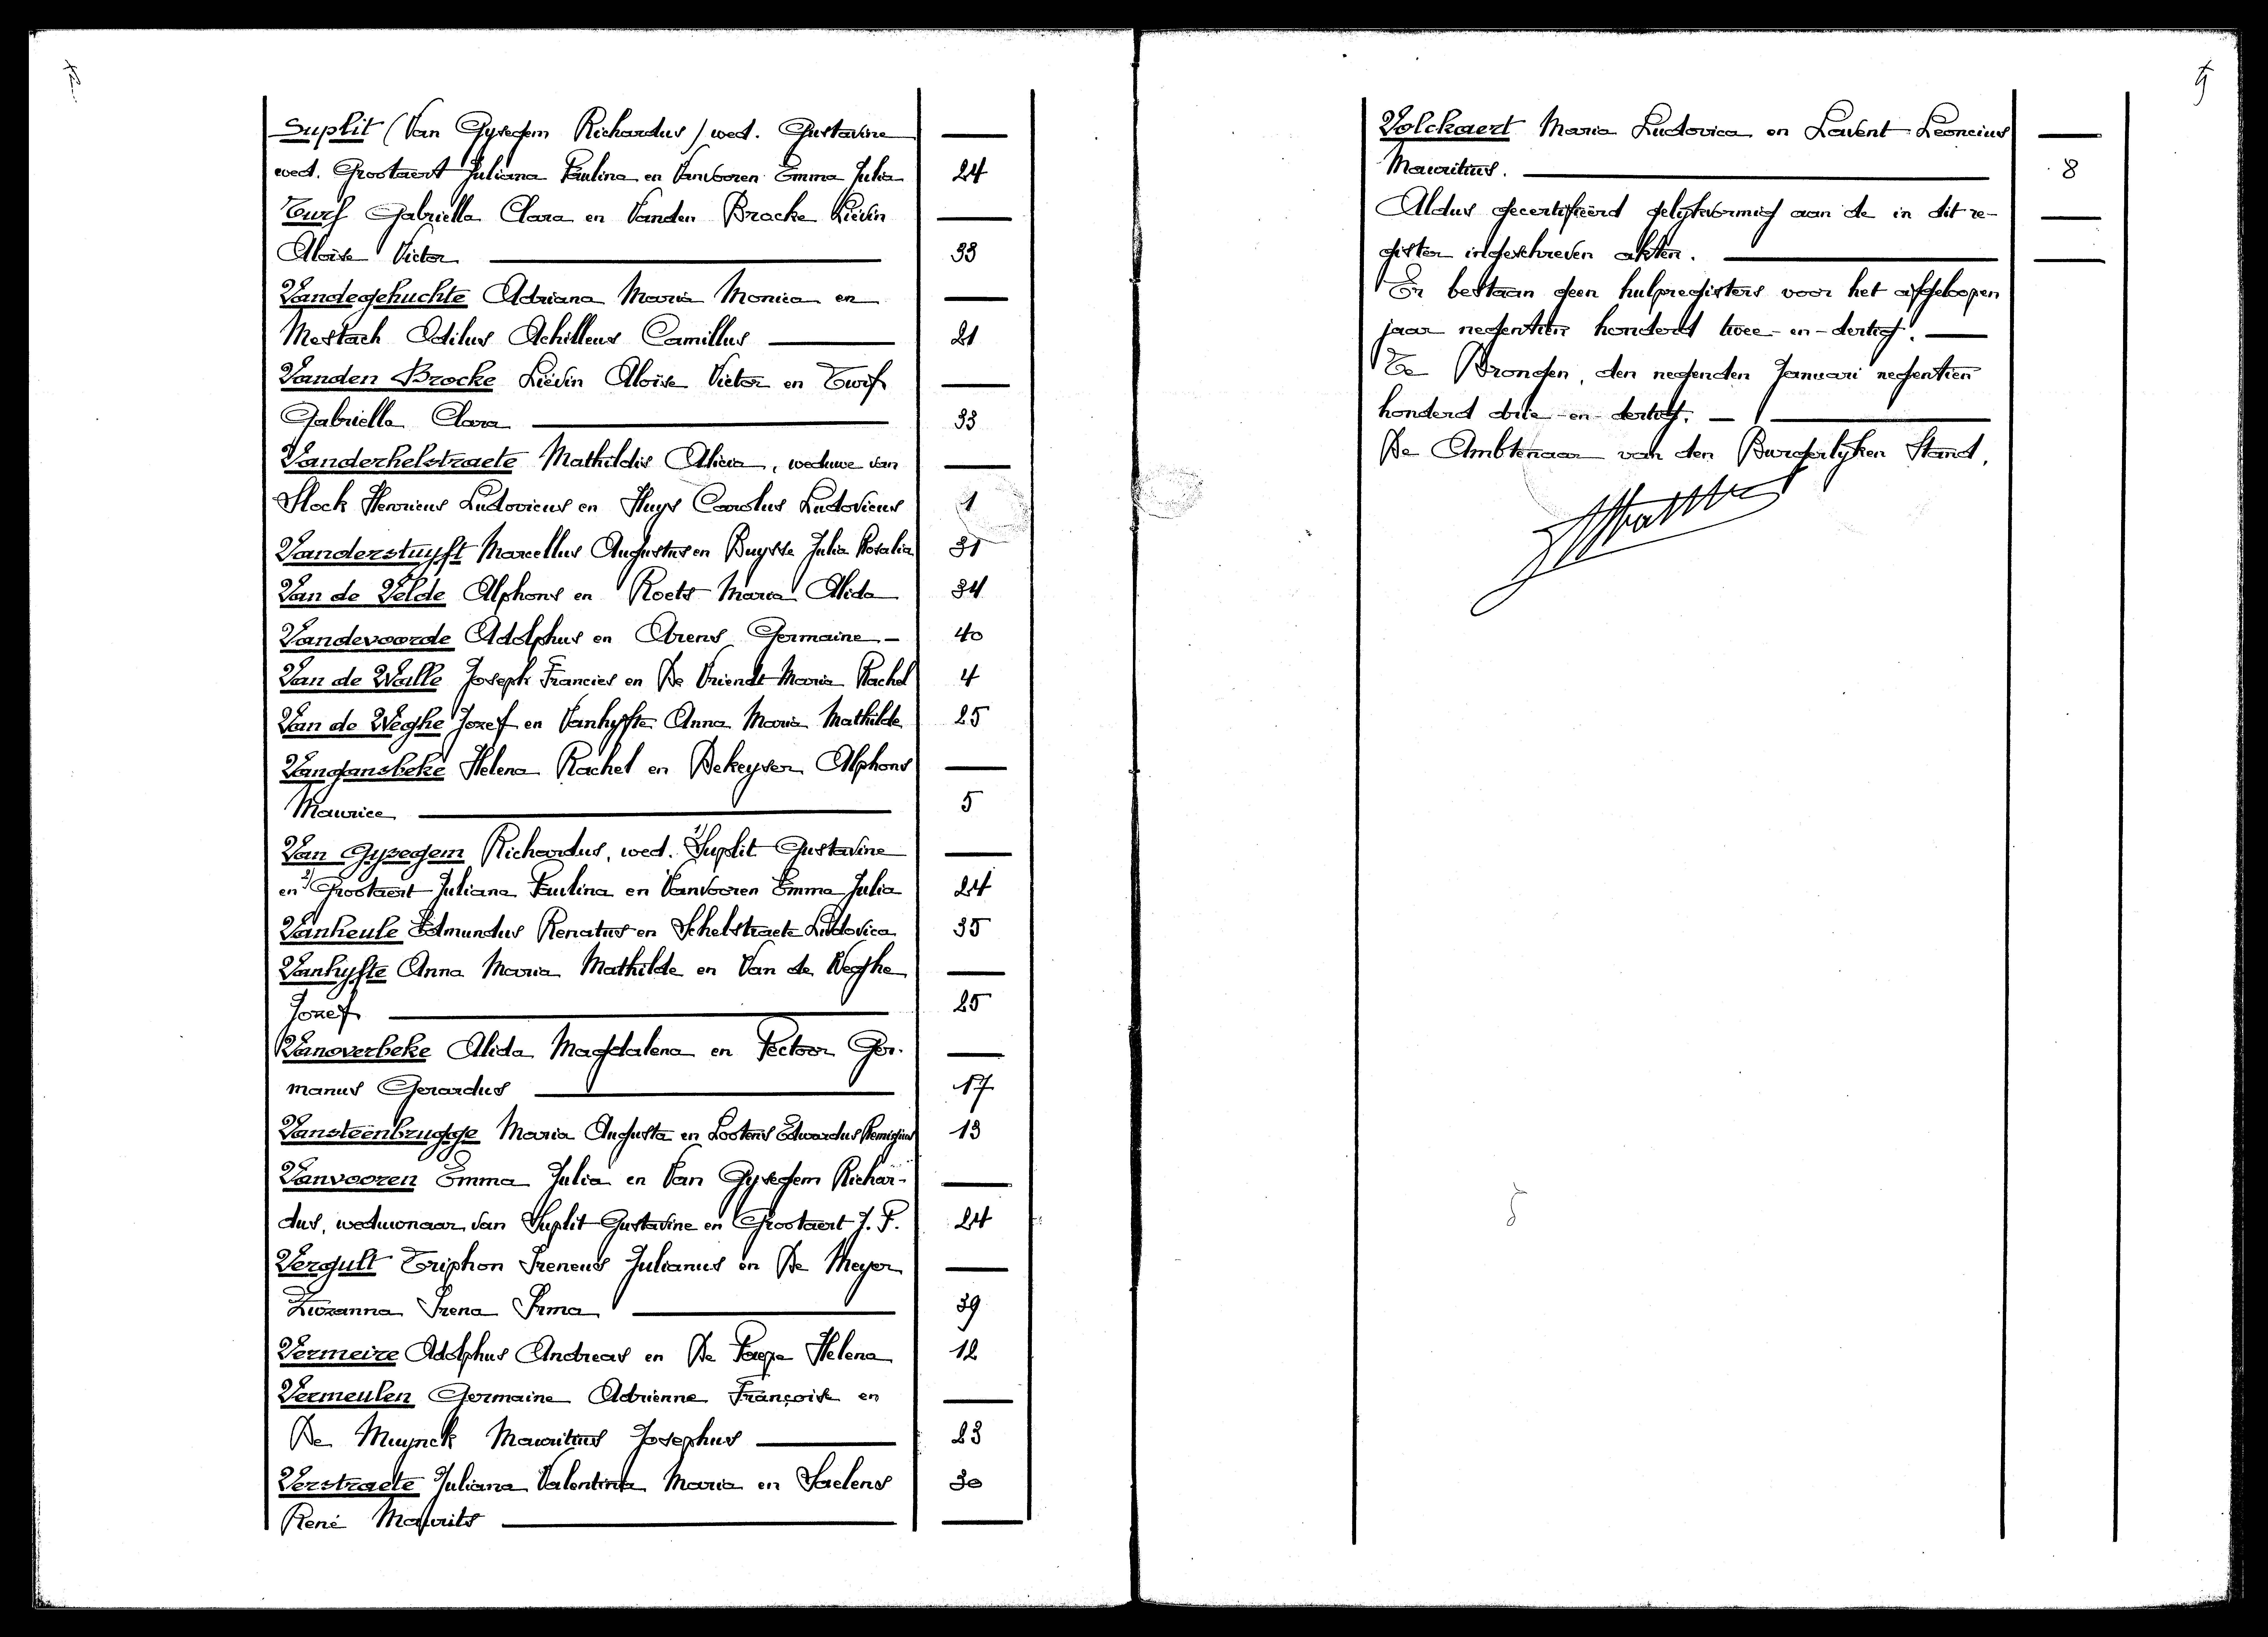 Suplit (Van Gysegem Richardus) wed. Gustavine
wed. Grootaert Juliana Paulina en Vanvooren Emma Julia 24
Turf Gabriella Clara en Vanden Brocke Liévin
Aloïse Victor 33
Vandegehuchte Adriana Maria Monica en
Mestach Odilus Achilleus Camillus 21
Vanden Brocke Liévin Aloïse Victor en Turf
Gabriella Clara 33
Vanderhelstraete Mathildis Alicia, weduwe van
Stock Henricus Ludovicus en Huys Carolus Ludovicus 1
Vanderstuyft Marcellus Augustus en Buysse Julia Rosalia 31
Van de Velde Alphons en Roets Maria Alida 34
Vandevoorde Adolphus en Arens Germaine - 40
Van de Walle Joseph Francies en De Vriendt Maria Rachel 4
Van de Weghe Jozef en Vanhyfte Anna Maria Mathilde 25
Vangansbeke Helena Rachel en Dekeyser Alphons
Maurice 5
Van Gysegem Richardus, wed. 1) Suplit Gustavine
en 2) Grootaert Juliana Paulina en Vanvooren Emma Julia 24
Vanheule Edmundus Renatus en Schelstraete Ludovica 35
Vanhyfte Anna Maria Mathilde en Van de Weghe
Jozef 25
Vanoverbeke Alida Magdalena en Pectoor Ger-
manus Gerardus 17
Vansteenbrugge Maria Augusta en Lootens Edwardus Remigius 13
Vanvooren Emma Julia en Van Gysegem Richar-
dus, weduwnaar van Suplit Gustavine en Grootaert J. P. 24
Vergult Triphon Ireneus Julianus en De Meyer
Zuzanna Irena Irma 39
Vermeire Adolphus Andreas en De Paepe Helena 12
Vermeulen Germaine Adrienne Françoise en
De Muynck Mauritius Josephus 23
Verstraete Juliana Valentina Maria en Saelens 30
René Maurits
Volckaert Maria Ludovica en Lavent Leoncius
Mauritius. 8
Aldus gecertifiëerd gelijkvormig aan de in dit re-
gister ingeschreven akten.
Er bestaan geen hulpregisters voor het afgeloopen
jaar negentien honderd twee-en-dertig.
Te Drongen, den negenden Januari negentien
honderd drie-en-dertig.
De Ambtenaar van den Burgerlyken Stand,